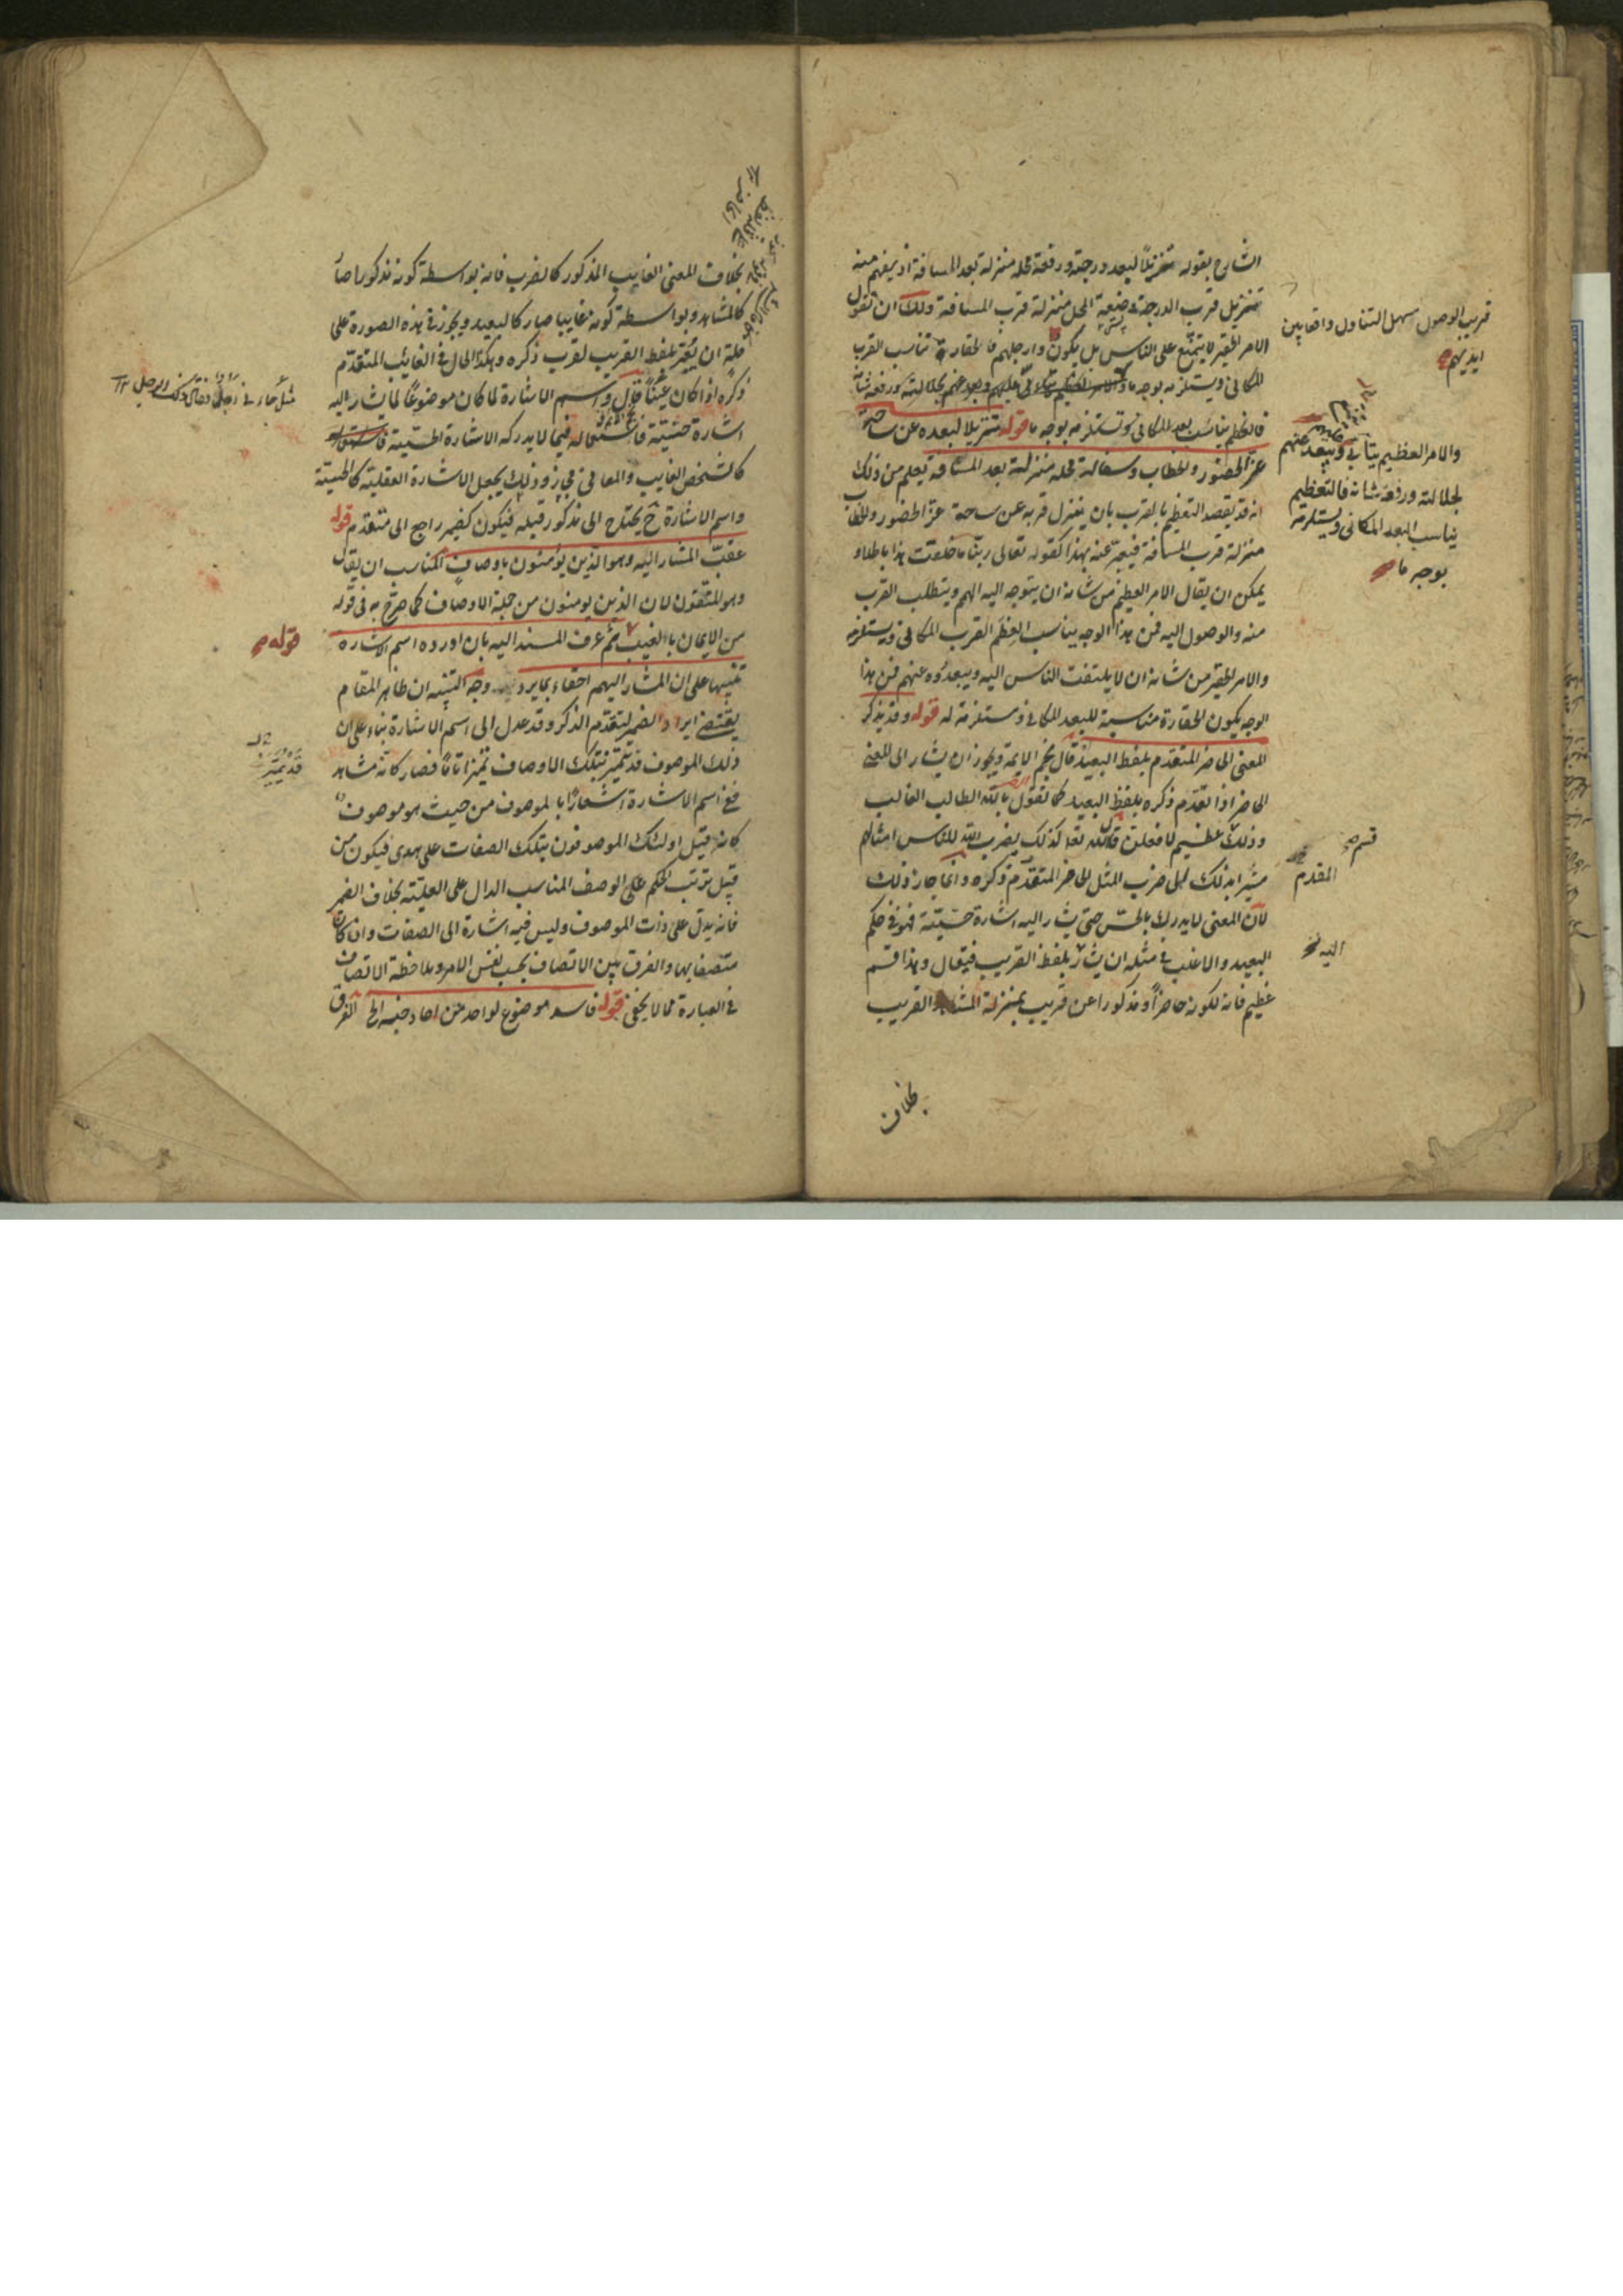 الشارح بقوله تنزيلا لبعد درجته ورفعة محله منزلة بعد المسافة اذ يفهم منه
تنزيل قرب الدرجة وضعة المحل منزلة قرب المسافة ولك ان تقول
الامر الحقير لا يمتنع على الناس بل يكون وارجلهم فالحقارة تناسب القرب
المكاني ويستلزمه بوجه ما والامر العظيم يتأبى عليهم ويبعد عنهم لجلالته ورفعة شانه
فالعظم يناسب بعد المكاني وتستلزمه بوجه ما قوله تنزيلا لبعده عن ساحة
عز الحضور والخطاب وسفالة محله منزلة بعد المسافة يعلم من ذلك
انه قد يقصد التعظيم بالقرب بان ينزل قربه عن ساحة عز الحضور والخطاب
منزلة قرب المسافة فيعبر عنه بهذا كقوله تعالى ربنا ما خلقت هذا باطلا و
يمكن ان يقال الامر العظيم من شانه ان يتوجه اليه الهمم ويتطلب القرب
منه والوصول اليه فمن هذا الوجه يناسب العظم القرب المكاني ويستلزمه
والامر الحقير من شانه ان لا يلتفت الناس اليه ويبعدوه عنهم فمن هذا
الوجه يكون الحقارة مناسبة للبعد المكاني ومستلزمة له قوله وقد يذكر
المعنى الحاضر المتقدم بلفظ البعيد قال نجم الايمة ويجوز ان يشار الى المعنى
الحاضر اذا تقدم ذكره بلفظ البعيد كما تقول بالله الطالب الغالب
وذلك قسم عظيم لافعلن قال الله تعالى كذلك يضرب الله للناس امثالهم
مشيرا بذلك الى ضرب المثل الحاضر المتقدم ذكره وانما جاز ذلك
لان المعنى لا يدرك بالحس حتى يشار اليه اشارة حسية فهو في حكم
البعيد والاغلب في مثله ان يشار بلفظ القريب فيقال وهذا قسم
عظيم فانه لكونه حاضرا ومذكورا عن قريب بمنزلة المشاهد القريب
بخلاف
قريب الوصول سهل التناول واقع بين
ايديهم
والامر العظيم يتأبى ويبعد عنهم
لجلالته ورفعة شانه فالتعظيم
يناسب البعد المكاني ويستلزمه
بوجه ما
قسم
المقدم
اليه
بخلاف المعنى الغايب المذكور كالضرب فانه بواسطة كونه مذكورا صار
كالمشاهد وبواسطة كونه غايبا صار كالبعيد ويجوز في هذه الصورة على
قلة ان يعبر بلفظ القريب لقرب ذكره وهكذا الحال في الغائب المتقدم
ذكره اذا كان عينا قال واسم الاشارة لما كان موضوعا لما يشار اليه
اشارة حسية فاستعماله فيما لا يدركه الاشارة الحسية
كالشخص الغايب والمعاني مجاز وذلك بجعل الاشارة العقلية كالحسية
واسم الاشارة ح يحتاج الى مذكور قبله فيكون كضمير راجع الى متقدم قوله
عقب المشار اليه وهو الذين يؤمنون باوصاف المناسب ان يقال
وهو المتقون لان الذين يومنون من جملة الاوصاف كما صرح به في قوله
من الايمان بالغيب ثم عرف المسند اليه بان اورده اسم الاشارة
تنبيها على ان المشار اليهم احقاء بما يرد وجه التنبيه ان ظاهر المقام
يقتضي ايراد الضمير لتقدم الذكر وقد عدل الى اسم الاشارة بناء على ان
ذلك الموصوف قد تميز بتلك الاوصاف تميزا تاما فصار كانه مشاهد
ففي اسم الاشارة اشعارا بالموصوف من حيث هو موصوف
كانه قيل اولئك الموصوفون بتلك الصفات على هدى فيكون من
قبيل ترتب الحكم على الوصف المناسب الدال على العلية بخلاف الضمير
فانه يدل على ذات الموصوف وليس فيه اشارة الى الصفات وان كان
متصفا بها والفرق بين الاتصاف بحسب نفس الامر وملاحظة الاتصاف
في العبارة مما لا يخفى قوله فاسد موضوع لواحد من احاد جنسه الخ الفرق
قوله